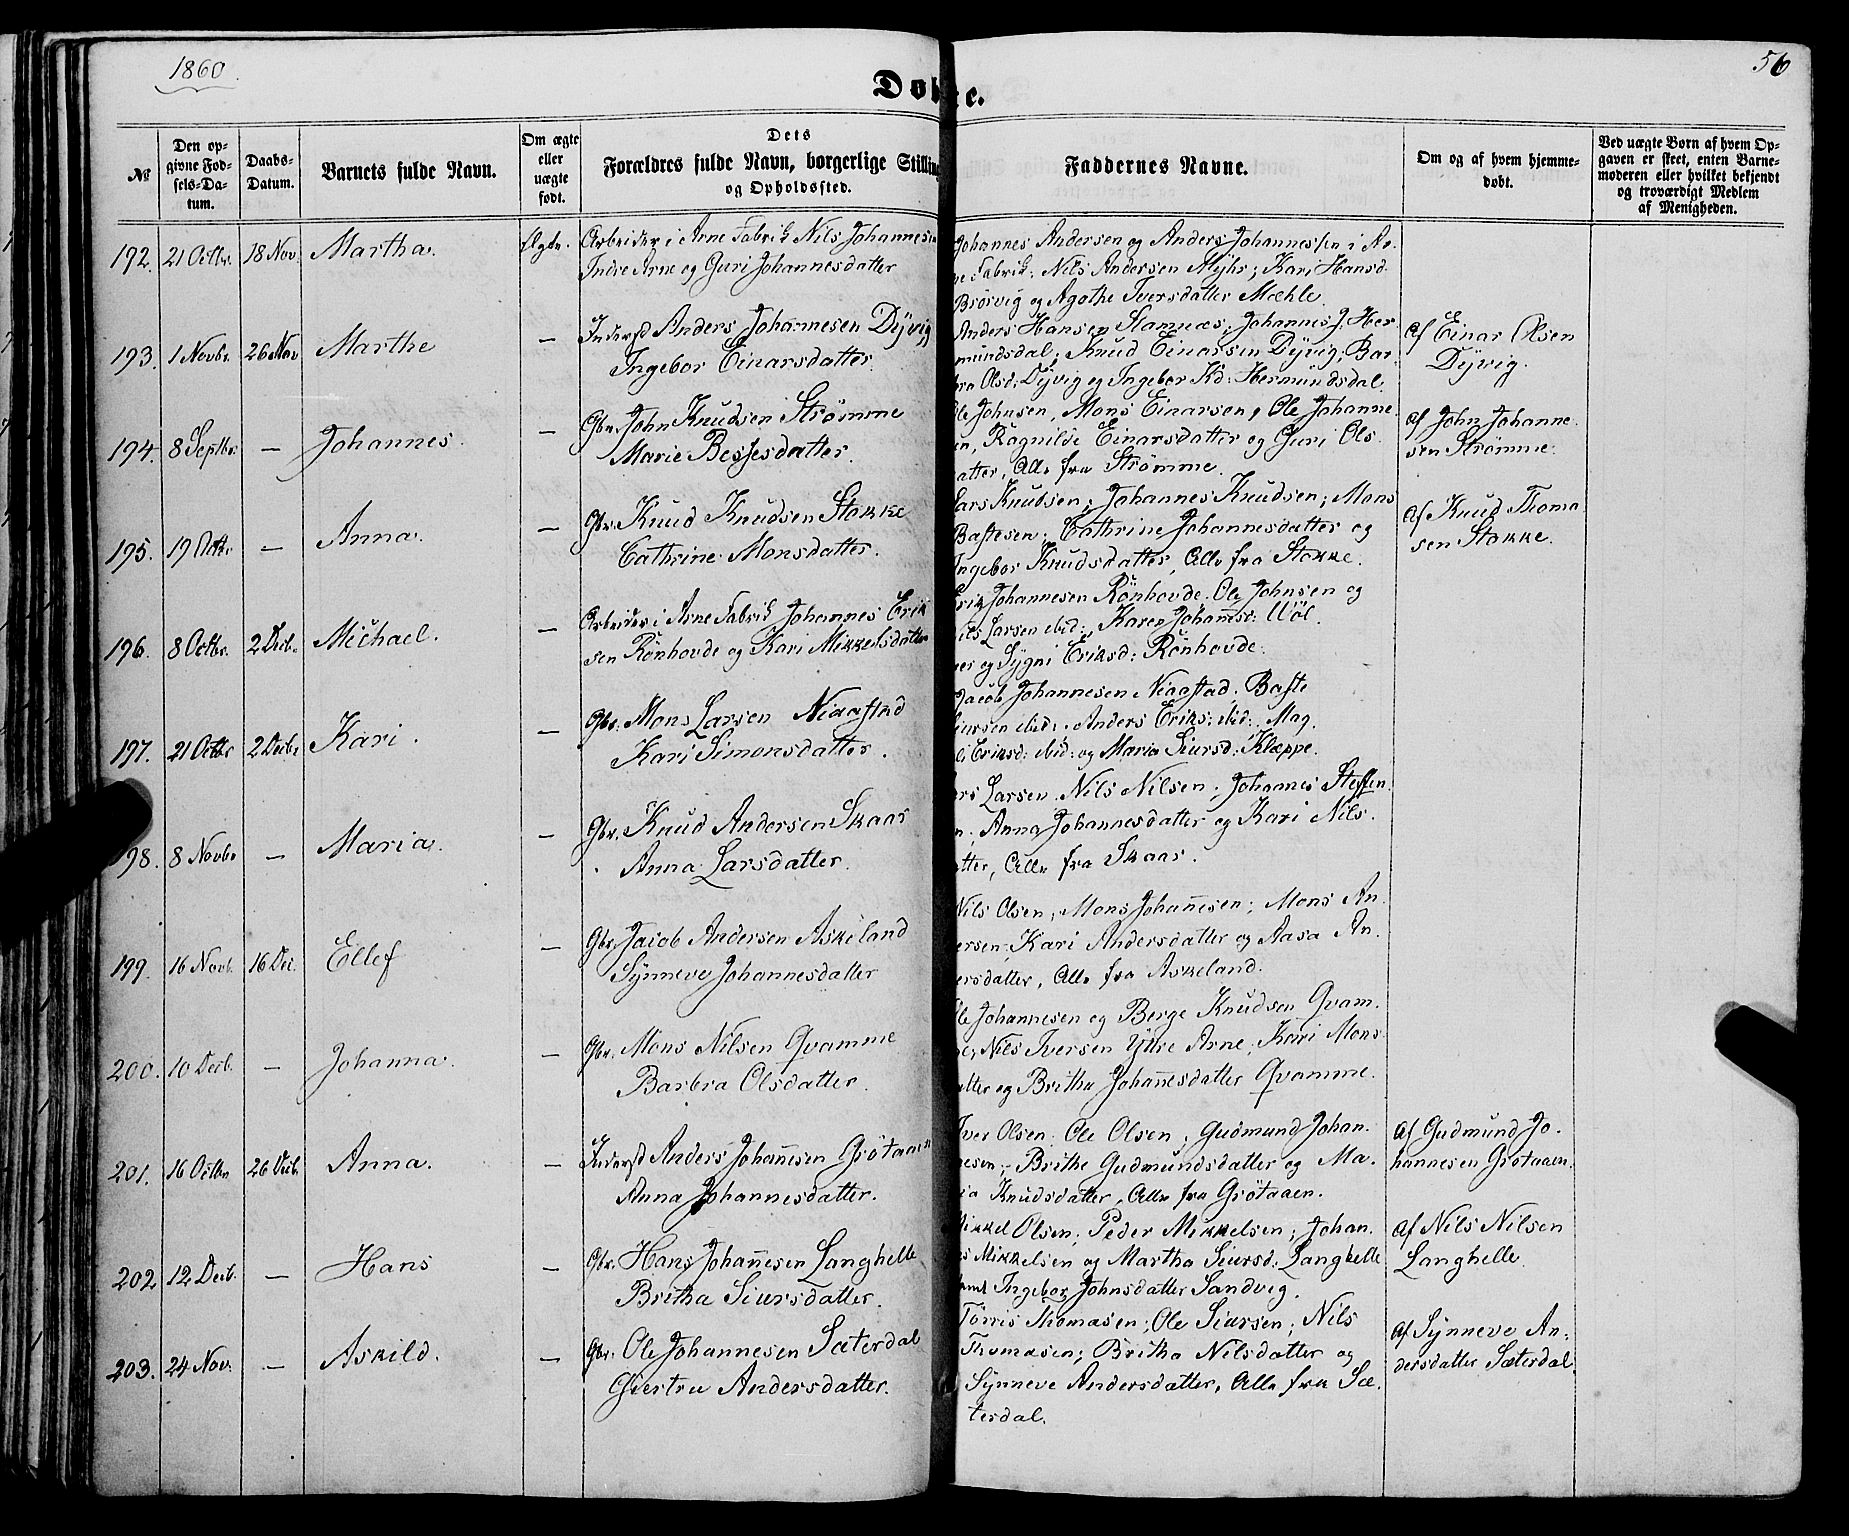 1860.
56
Døbte.
№
Den opgivne Fødsels-Datum.
Daabs-Datum.
Barnets fulde Navn.
Om ægte eller uægte født.
Dets Forældres fulde Navn, borgerlige Stilling og Opholdssted.
Faddernes Navne.
Om og af hvem hjemmedøbt.
Ved uægte Børn af hvem Opgaven er skeet, enten Barnemoderen eller hvilket bekjendt og troværdigt Medlem af Menigheden.
192. 21 Octbr. 18 Nov. Martha. Ægte. Arbeider i Arne Fabrik Nils Johannesen
Indre Arne og Guri Johannesdatter
Johannes Andersen og Anders Johannessen i Ar-
ne Fabrik; Nils Andersen Myhr; Kari Hansd.
Brørvig og Agothe Iversdatter Mæhle.
193. 1 Novbr. 26 Nov Marthe — Inderst Anders Johannesen Dyvig
Ingebor Einarsdatter.
Anders Hansen Stamnes, Johannes J. Her-
mundsdal; Knud Einarsen Dyvig; Bar-
bra Olsd: Dyvig og Ingebor Kd: Hermundsdal.
Af Einar Olsen
Dyvig.
194. 8 Septbr. — Johannes. — Gbr. John Knudsen Strømme
Marie Bessesdatter.
Ole Johnsen, Mons Einarsen, Ole Johanne-
sen, Ragnilde Einarsdatter og Guri Ols-
datter, Alle fra Strømme.
Af John Johanne-
sen Strømme.
195. 19 Octbr — Anna. — Gbr. Knud Knudsen Stokke
Cathrine Monsdatter.
Lars Knudsen; Johannes Knudsen; Mons
Bastesen; Cathrine Johannesdatter og
Ingebor Knudsdatter, Alle fra Stokke.
Af Knud Thoma-
sen Stokke.
196. 8 Octbr. 2 Decb. Michael. — Arbeider i Arne Fabrik Johannes Erik
sen Rønhovde og Kari Mikkelsdatter
Erik Johannesen Rønhovde. Ole Johnsen og
Nils Larsen ibid:, Karen Johannsd: Uøl.
er og Sygni Eriksd: Rønhovde.
197. 21 Octbr 2 Decbr Kari. — Gbr. Mons Larsen Niaastad
Kari Simonsdatter.
Jacob Johannesen Niaastad. Baste
Siursen ibid:, Anders Eriks: ibid:, Mag.
li Eriksd: ibid: og Maria Siursd: Klæppe.
198. 8 Novbr — Maria. — Gbr. Knud Andersen Skaar
Anna Larsdatter.
ers Larsen. Nils Nilsen; Johannes Steffen
n; Anna Johannesdatter og Kari Nils.
atter, Alle fra Skaar.
199. 16 Novb. 16 Dec. Ellef — Gbr. Jacob Andersen Askeland
Synneve Johannesdatter
Nils Olsen; Mons Johannesen; Mons An-
ersen; Kari Andersdatter og Aasa An-
ersdatter, Alle fra Askeland.
200. 10 Decb. — Johanna. — Gbr. Mons Nilsen Qvamme
Barbra Olsdatter.
Ole Johannesen og Berge Knudsen Qvam-
me; Nils Iversen Yttre Arne; Kari Mons-
atter og Britha Johannesdatter Qvamme.
201. 16 Octbr 26 Decb. Anna. — Inderst Anders Johannesen Grøtaaen
Anna Johannesdatter.
Iver Olsen. Ole Olsen; Gudmund Johan-
nesen; Brithe Gudmundsdatter og Ma-
ria Knudsdatter, Alle fra Grøtaaen.
Af Gudmund Jo-
hannesen Grøtaaen.
202. 12 Decb. — Hans — Gbr. Hans Johannesen Langhelle
Britha Siursdatter.
Mikkel Olsen; Peder Mikkelsen; Johan-
s Mikkelsen og Martha Siursd: Langhelle
samt Ingebor Johnsdatter Sandvig.
Af Nils Nilsen
Langhelle.
203. 24 Nov. — Askild. — Gbr. Ole Johannesen Sæterdal
Giertru Andersdatter.
Tørris Thomasen; Ole Siursen; Nils
Thomasen; Britha Nilsdatter og
Synneve Andersdatter, Alle fra Sæ-
terdal.
Af Synneve An-
dersdatter Sæterdal